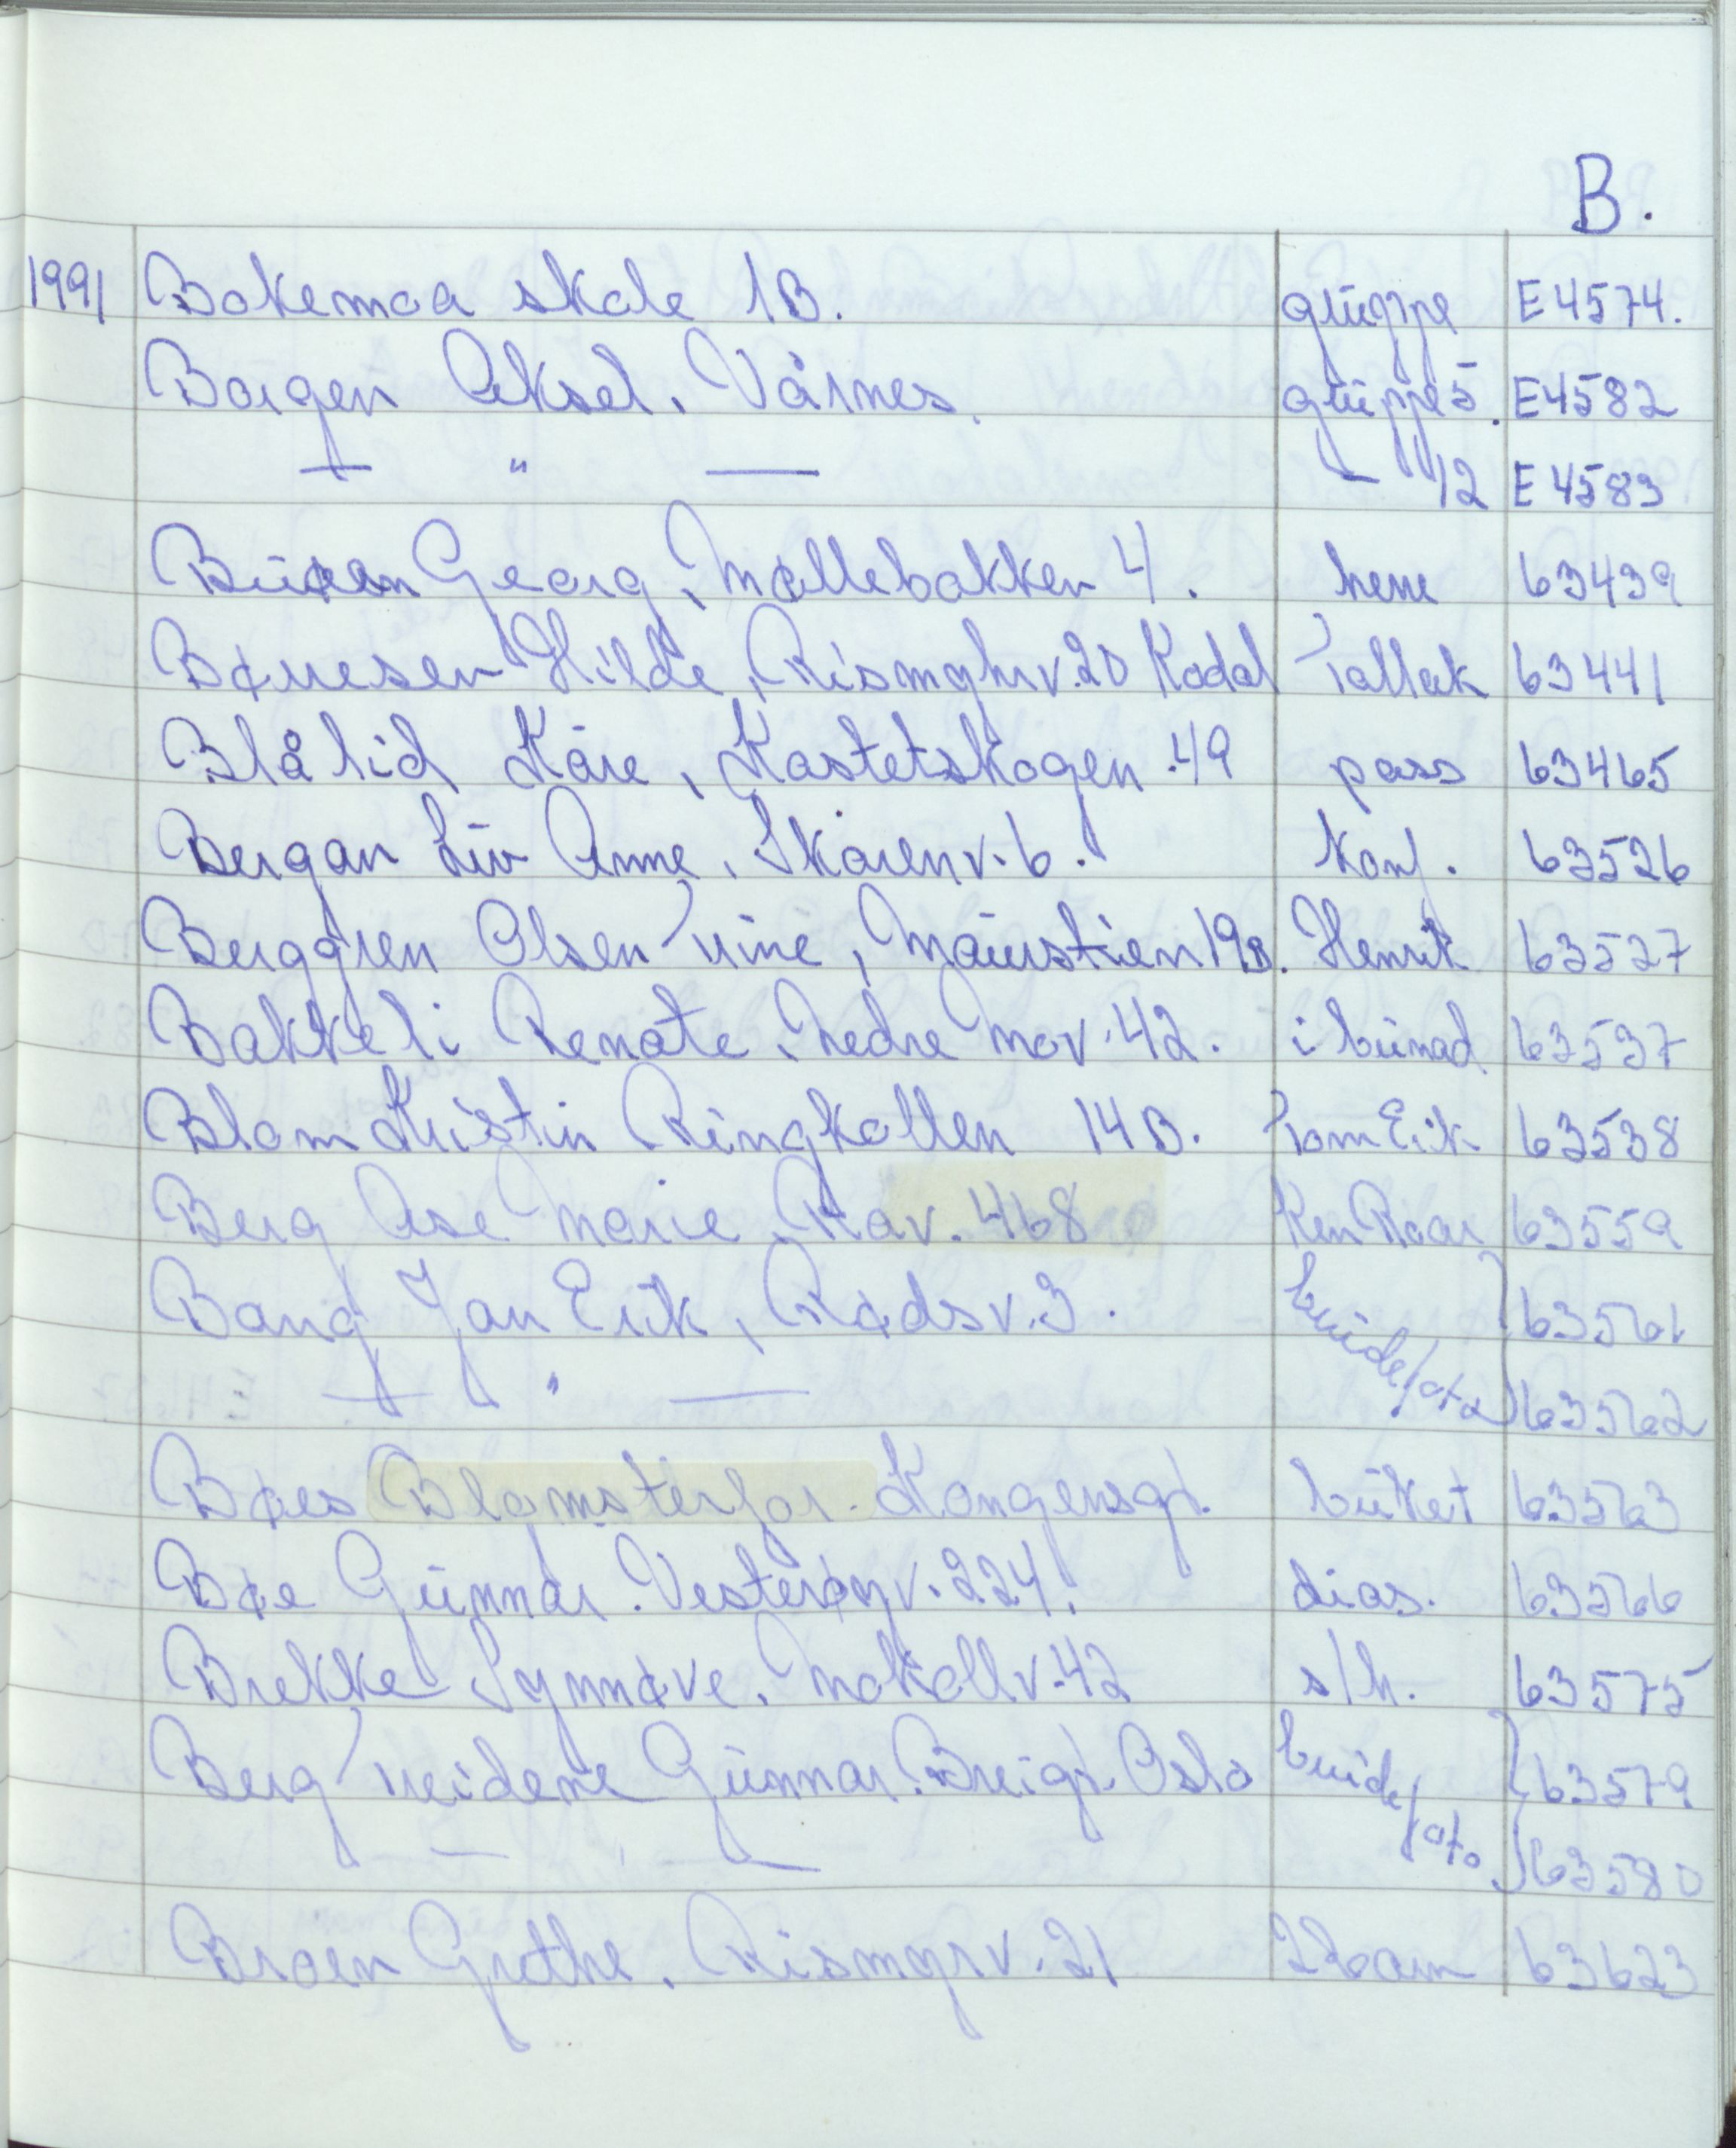 B.
1991 Bokemoa skole 1B. gruppe E4574.
Borgen Aksel, Vårnes. gruppe 5. E4582
— " — — 12 E4583
Georg, Møllebakken 4. herre 63439
Bøuesen Hilde, Rismyhrv. 20 Kodal Tallak 63441
Blålid Kåre, Kastetskogen 49 pass 63465
Bergan Liv Anne, Skårenv. 6. konf. 63526
Berggren Olsen Trine, Maurstien 19B. Henrik 63527
Bakkeli Renate, Nedre Mov. 42. i bunad 63537
Blom Kristin Ringkollen 14B. Tom Erik 63538
Berg Åse Marie, Rav. 468 Ken Roar 63559
Bang Jan Erik, Rødsv. 3. brudefoto 63561
— " — 63562
Bøes Blomsterfor. Kongensgt. buket 63563
Bøe Gunnar. Vesterøyv. 224. dias. 63566
Brekke Synnøve. Mokollv. 42 s/h. 63575
Berg Treidene Gunnar. Breigt. Oslo brudefoto 63579
— " — 63580
Broen Grethe. Rismyrv. 21 2 barn 63623